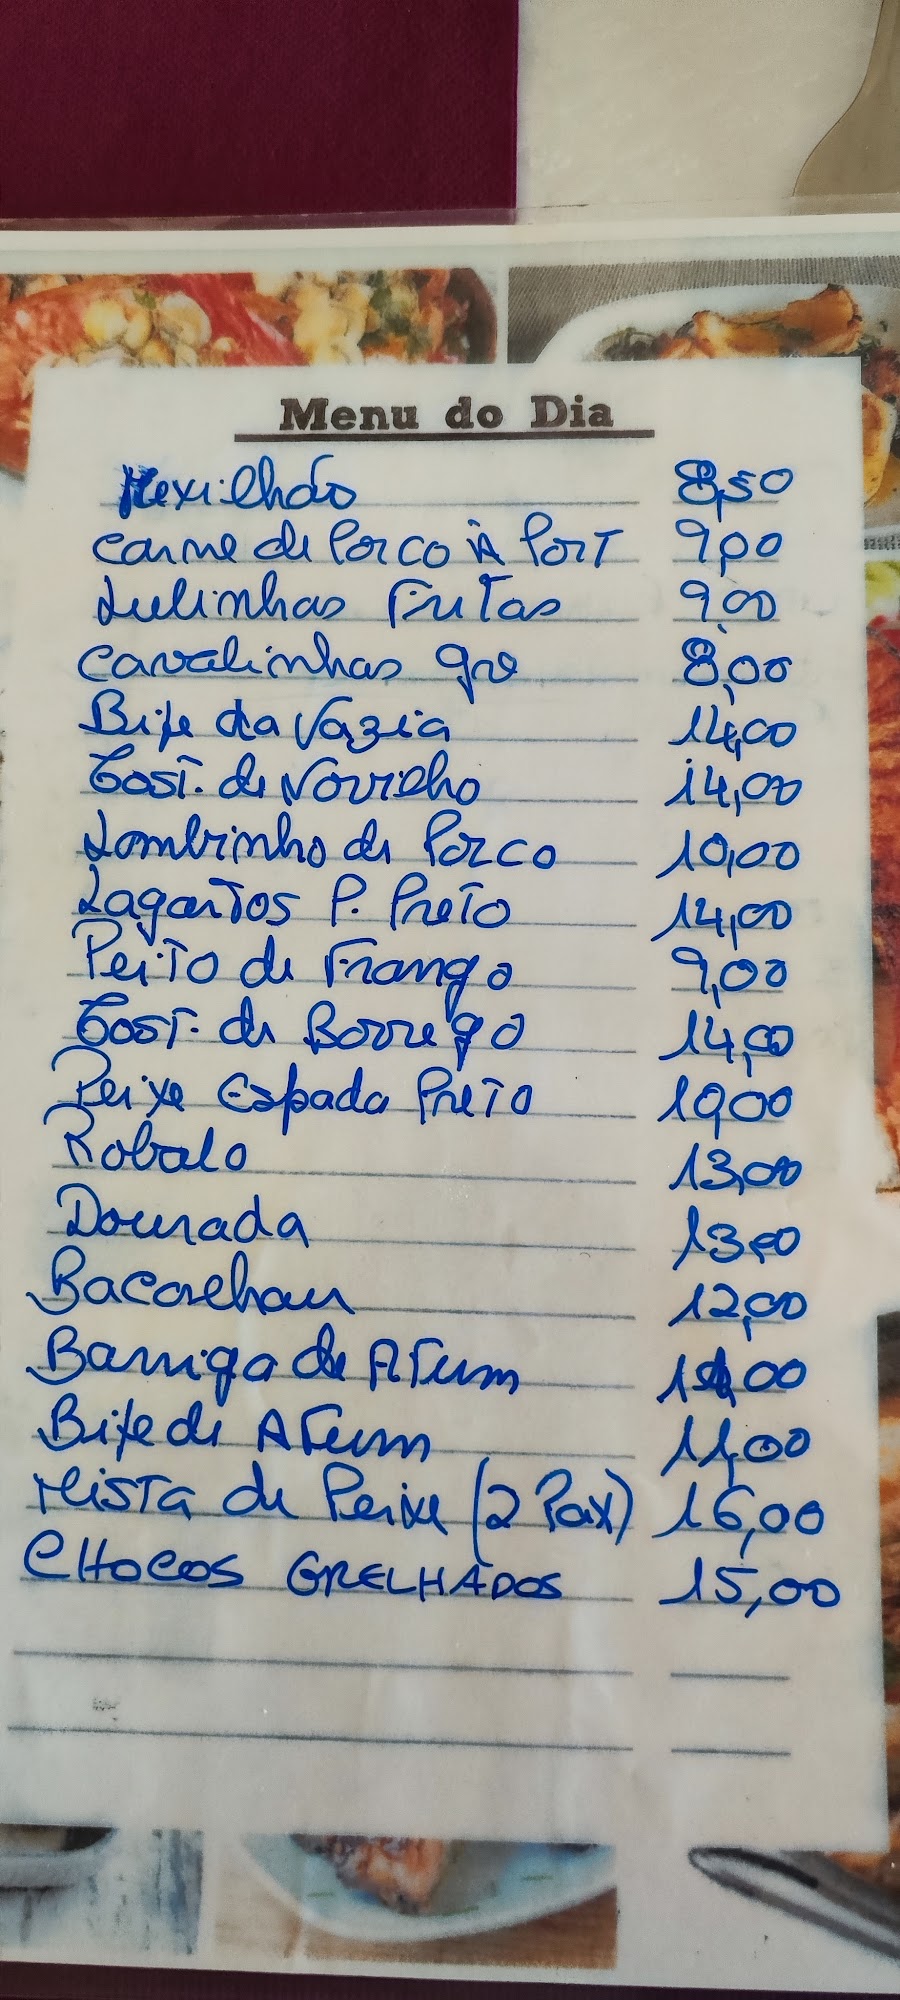 Menu do Dia
Mexilhão 8,50
Carne de Porco À Port 9,00
Lulinhas Fritas 9,00
Cavalinhas gre 8,00
Bife da Vazia 14,00
Cost. de Novilho 14,00
Lombinho de Porco 10,00
Lagartos P. Preto 14,00
Peito de Frango 9,00
Cost. de Borrego 14,00
Peixe Espada Preto 10,00
Robalo 13,00
Dourada 13,00
Bacaelhau 12,00
Barriga de Atum
Bife de Atum 11,00
Mista de Peixe (2 Pax) 16,00
CHOCOS GRELHADOS 15,00